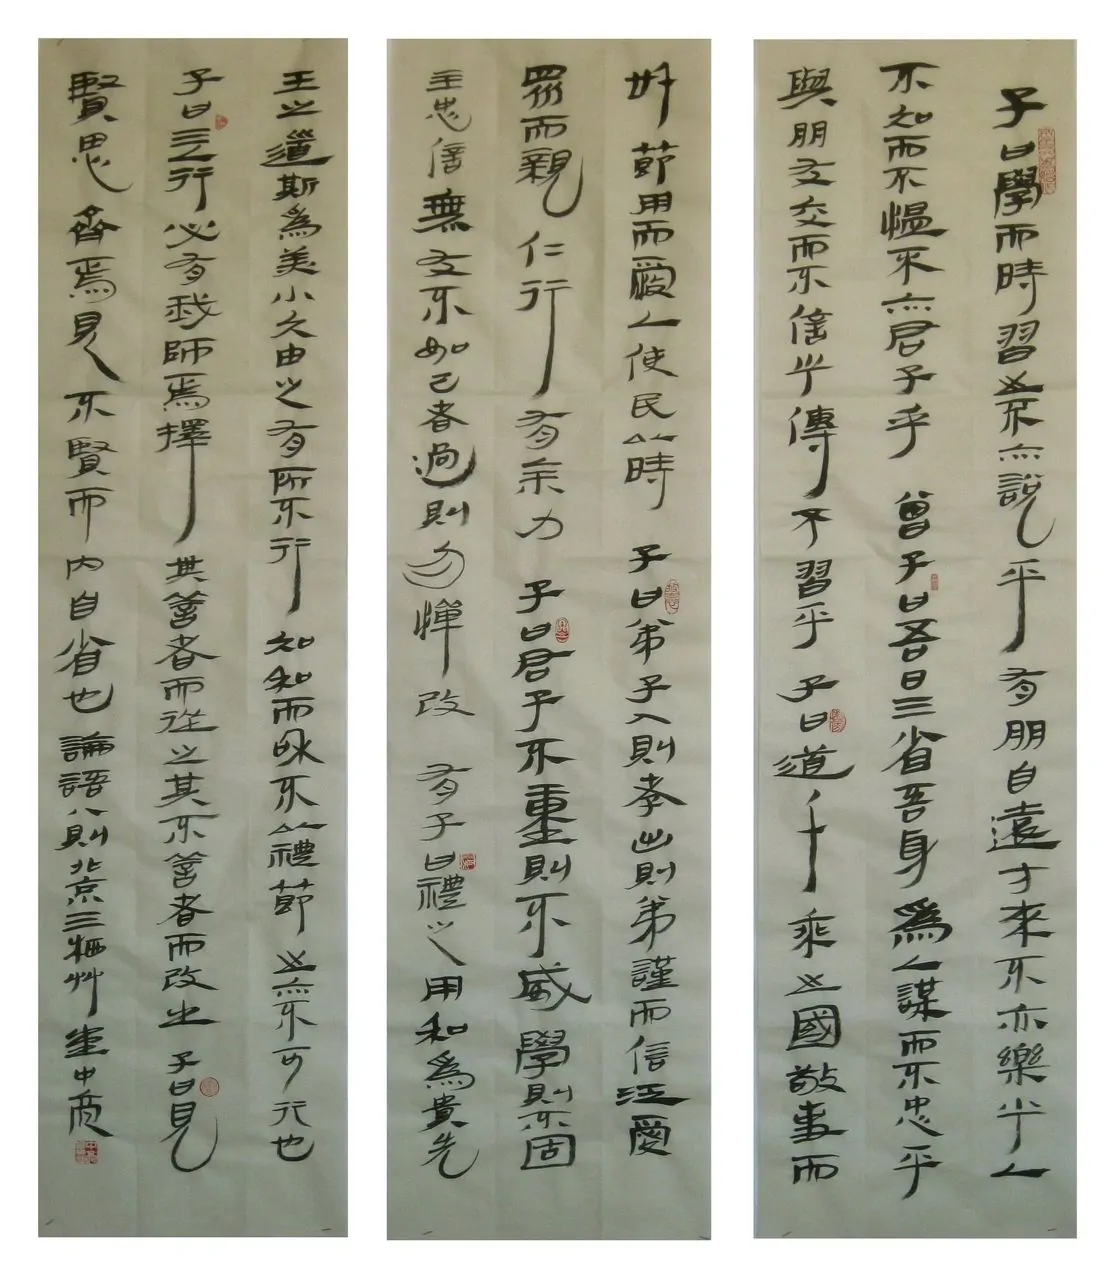 子曰學而時習之不亦說乎有朋自遠方來不亦樂乎人
不知而不慍不亦君子乎曾子曰吾日三省吾身為人謀而不忠乎
與朋友交而不信乎傳不習乎子曰道千乘之國敬事而
節用而愛人使民以時子曰弟子入則孝出則弟謹而信汎愛
眾而親仁行有余力子曰君子不重則不威學則不固
主忠信無友不如己者過則勿憚改有子曰禮之用和為貴先
王之道斯為美小大由之有所不行知和而和不以禮節之亦不可行也
子曰三人行必有我師焉擇其善者而從之其不善者而改之子曰見
賢思齊焉見不賢而內自省也論語八則北京三栖艸堂中